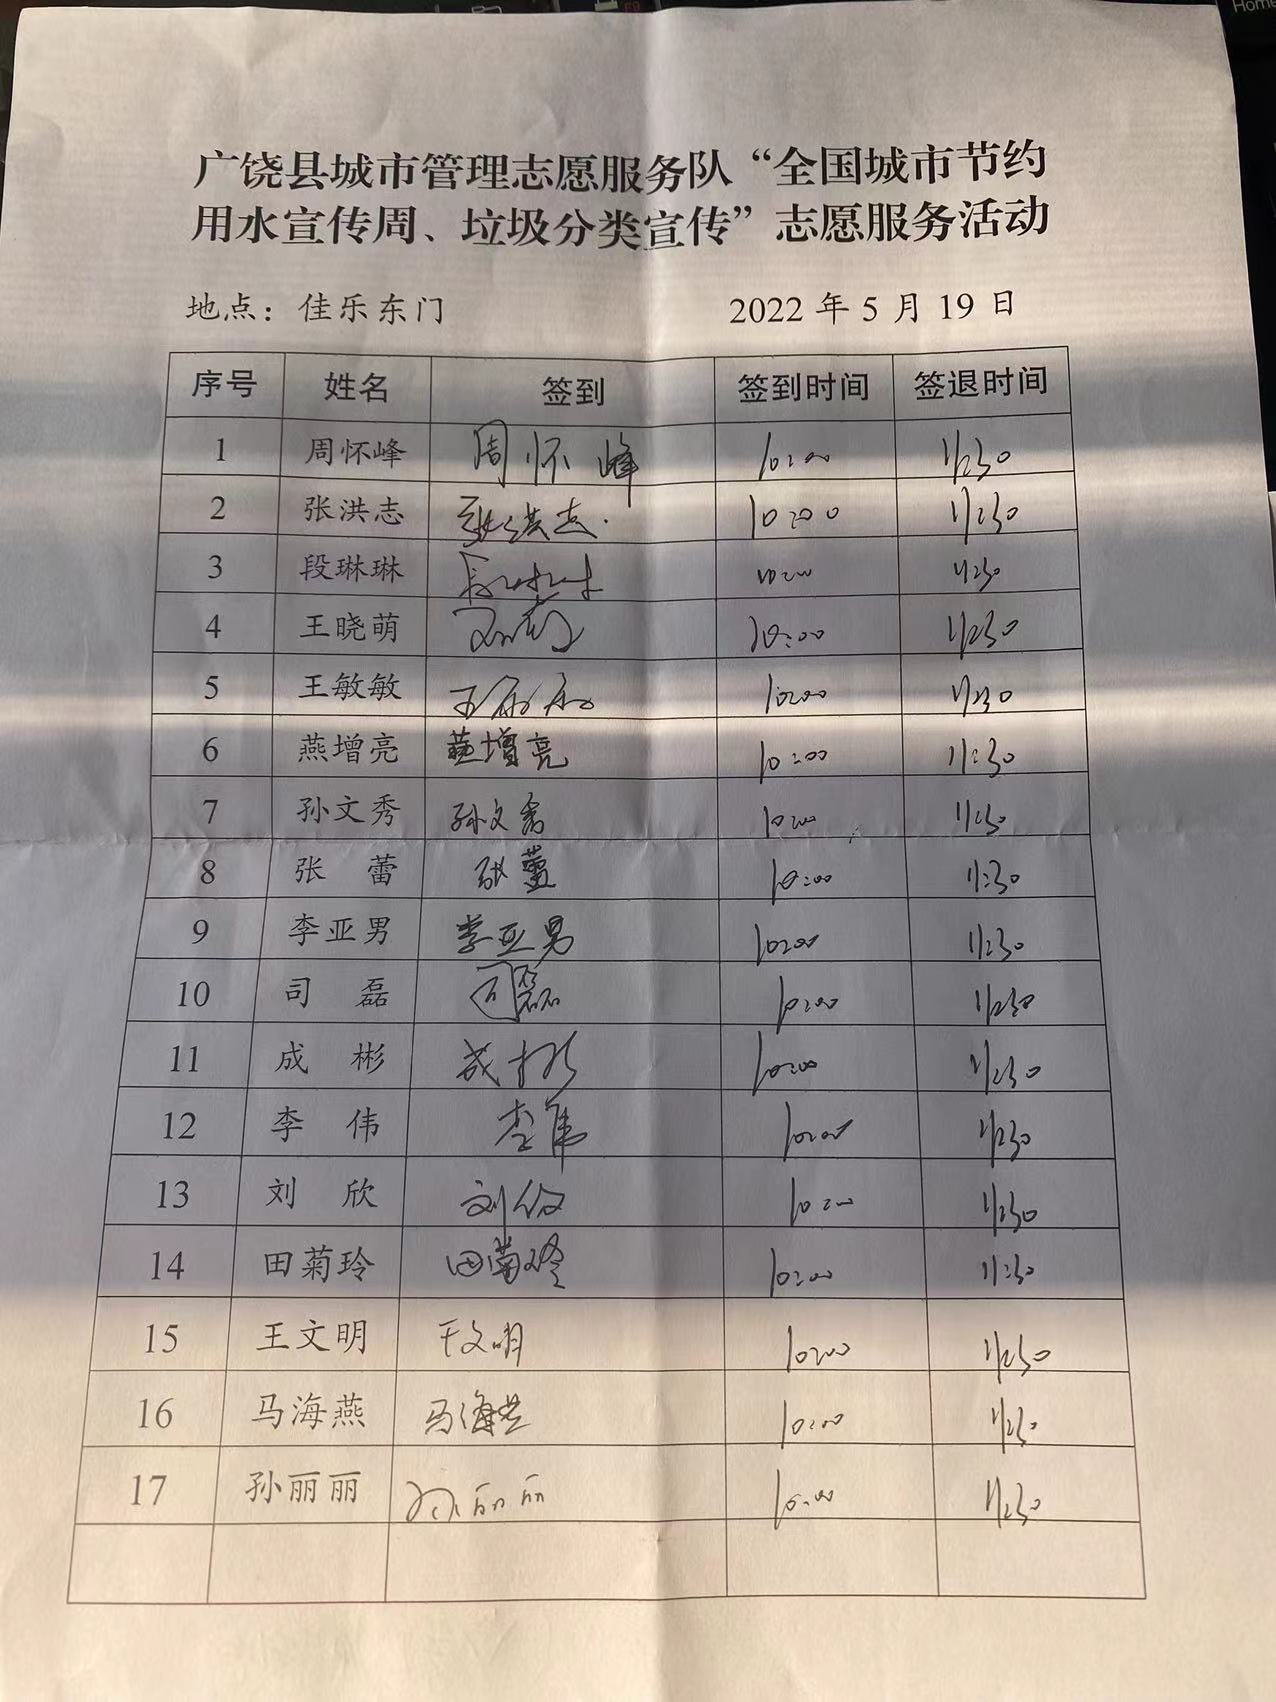 广饶县城市管理志愿服务队“全国城市节约
用水宣传周、垃圾分类宣传”志愿服务活动
地点：佳乐东门 2022年5月19日
序号 姓名 签到 签到时间 签退时间
1 周怀峰 周怀峰 10:00 11:30
2 张洪志 张洪志 10:00 11:30
3 段琳琳 段琳琳 10:00 11:30
4 王晓萌 10:00 11:30
5 王敏敏 王敏敏 10:00 11:30
6 燕增亮 燕增亮 10:00 11:30
7 孙文秀 孙文秀 10:00 11:30
8 张蕾 张蕾 10:00 11:30
9 李亚男 李亚男 10:00 11:30
10 司磊 司磊 10:00 11:30
11 成彬 成彬 10:00 11:30
12 李伟 李伟 10:00 11:30
13 刘欣 刘欣 10:00 11:30
14 田菊玲 田菊玲 10:00 11:30
15 王文明 王文明 10:00 11:30
16 马海燕 马海燕 10:00 11:30
17 孙丽丽 孙丽丽 10:00 11:30